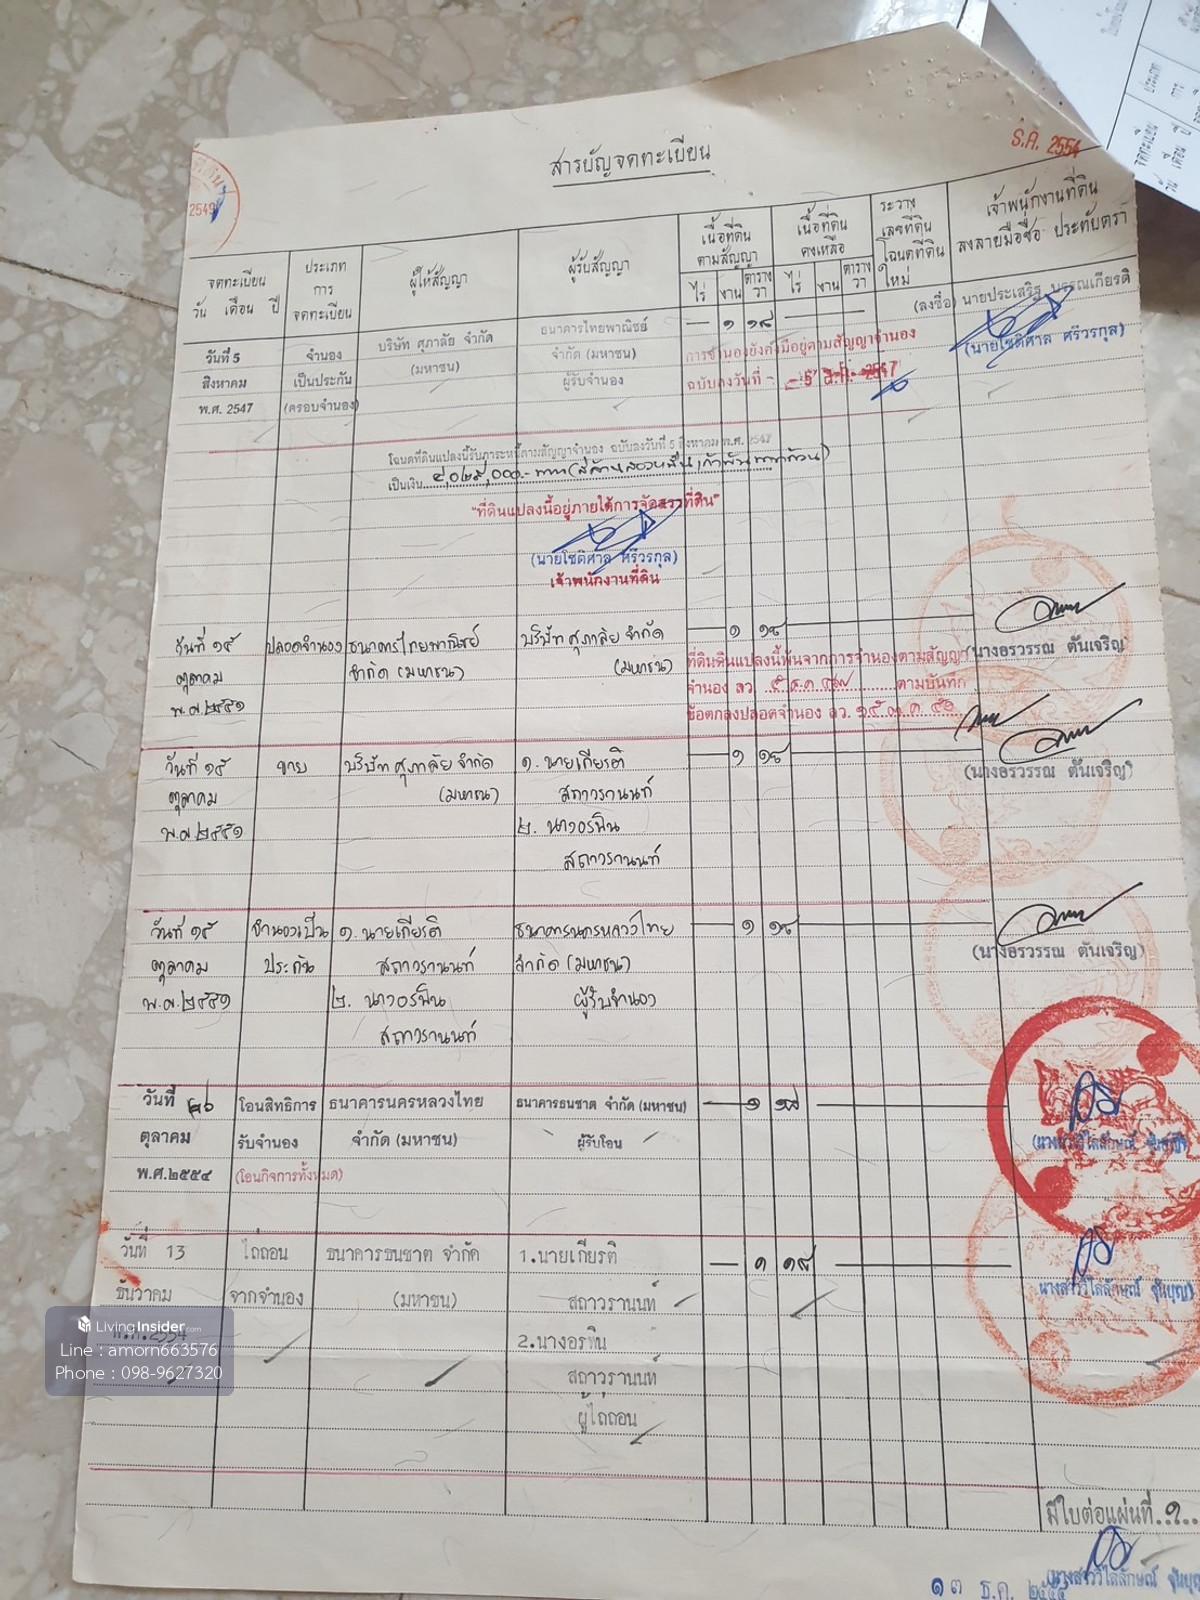 สารบัญจดทะเบียน
ธ.ค. 2554
2549
จดทะเบียน
วัน เดือน ปี
ประเภท
การ
จดทะเบียน
ผู้ให้สัญญา
ผู้รับสัญญา
เนื้อที่ดิน
ตามสัญญา
ไร่ งาน ตาราง
วา
เนื้อที่ดิน
คงเหลือ
ไร่ งาน ตาราง
วา
ระวาง
เลขที่ดิน
โฉนดที่ดิน
ใหม่
เจ้าพนักงานที่ดิน
ลงลายมือชื่อ ประทับตรา
วันที่ 5
สิงหาคม
พ.ศ. 2547
จำนอง
เป็นประกัน
(ครอบจำนอง)
บริษัท ศุภาลัย จำกัด
(มหาชน)
ธนาคารไทยพาณิชย์
จำกัด (มหาชน)
ผู้รับจำนอง
๑ ๑๘
การจำนองยังคงมีอยู่ตามสัญญาจำนอง
ฉบับลงวันที่ - 5 ส.ค. 2547
(ลงชื่อ) นายประเสริฐ บรรณเกียรติ
(นายโชติศาล ศรีวรกุล)
โฉนดที่ดินแปลงนี้รับภาระหนี้ตามสัญญาจำนอง ฉบับลงวันที่ 5 สิงหาคม พ.ศ. 2547
เป็นเงิน
"ที่ดินแปลงนี้อยู่ภายใต้การจัดสรรที่ดิน"
(นายโชติศาล ศรีวรกุล)
เจ้าพนักงานที่ดิน
วันที่ ๑๕
ตุลาคม
พ.ศ. ๒๕๕๑
ปลอดจำนอง
ธนาคารไทยพาณิชย์
จำกัด (มหาชน)
บริษัท ศุภาลัย จำกัด
(มหาชน)
๑ ๑๘
ที่ดินดินแปลงนี้พ้นจากการจำนองตามสัญญา
จำนอง ลว. ๕ ส.ค. ๔๗ ตามบันทึก
ข้อตกลงปลอดจำนอง ลว. ๑๕ ต.ค. ๕๑
(นางอรวรรณ ตันเจริญ)
วันที่ ๑๕
ตุลาคม
พ.ศ. ๒๕๕๑
ขาย
บริษัท ศุภาลัย จำกัด
(มหาชน)
๑. นายเกียรติ
สถาวรานนท์
๒. นางอรพิน
สถาวรานนท์
๑ ๑๘
(นางอรวรรณ ตันเจริญ)
วันที่ ๑๕
ตุลาคม
พ.ศ. ๒๕๕๑
จำนองเป็น
ประกัน
๑. นายเกียรติ
สถาวรานนท์
๒. นางอรพิน
สถาวรานนท์
ธนาคารนครหลวงไทย
จำกัด (มหาชน)
ผู้รับจำนอง
๑ ๑๘
(นางอรวรรณ ตันเจริญ)
วันที่ ๒๖
ตุลาคม
พ.ศ.๒๕๕๔
โอนสิทธิการ
รับจำนอง
(โอนกิจการทั้งหมด)
ธนาคารนครหลวงไทย
จำกัด (มหาชน)
ธนาคารธนชาต จำกัด (มหาชน)
ผู้รับโอน
๑ ๑๘
วันที่ 13
ธันวาคม
พ.ศ.2554
ไถ่ถอน
จากจำนอง
ธนาคารธนชาต จำกัด
(มหาชน)
1.นายเกียรติ
สถาวรานนท์
2.นางอรพิน
สถาวรานนท์
ผู้ไถ่ถอน
๑ ๑๘
นางสาววิไลลักษณ์ จุ้ยบุญ
LivingInsider.com
Line : amorn663576
Phone : 098-9627320
มีใบต่อแผ่นที่..๑..
๑๓ ธ.ค. ๒๕๕๔